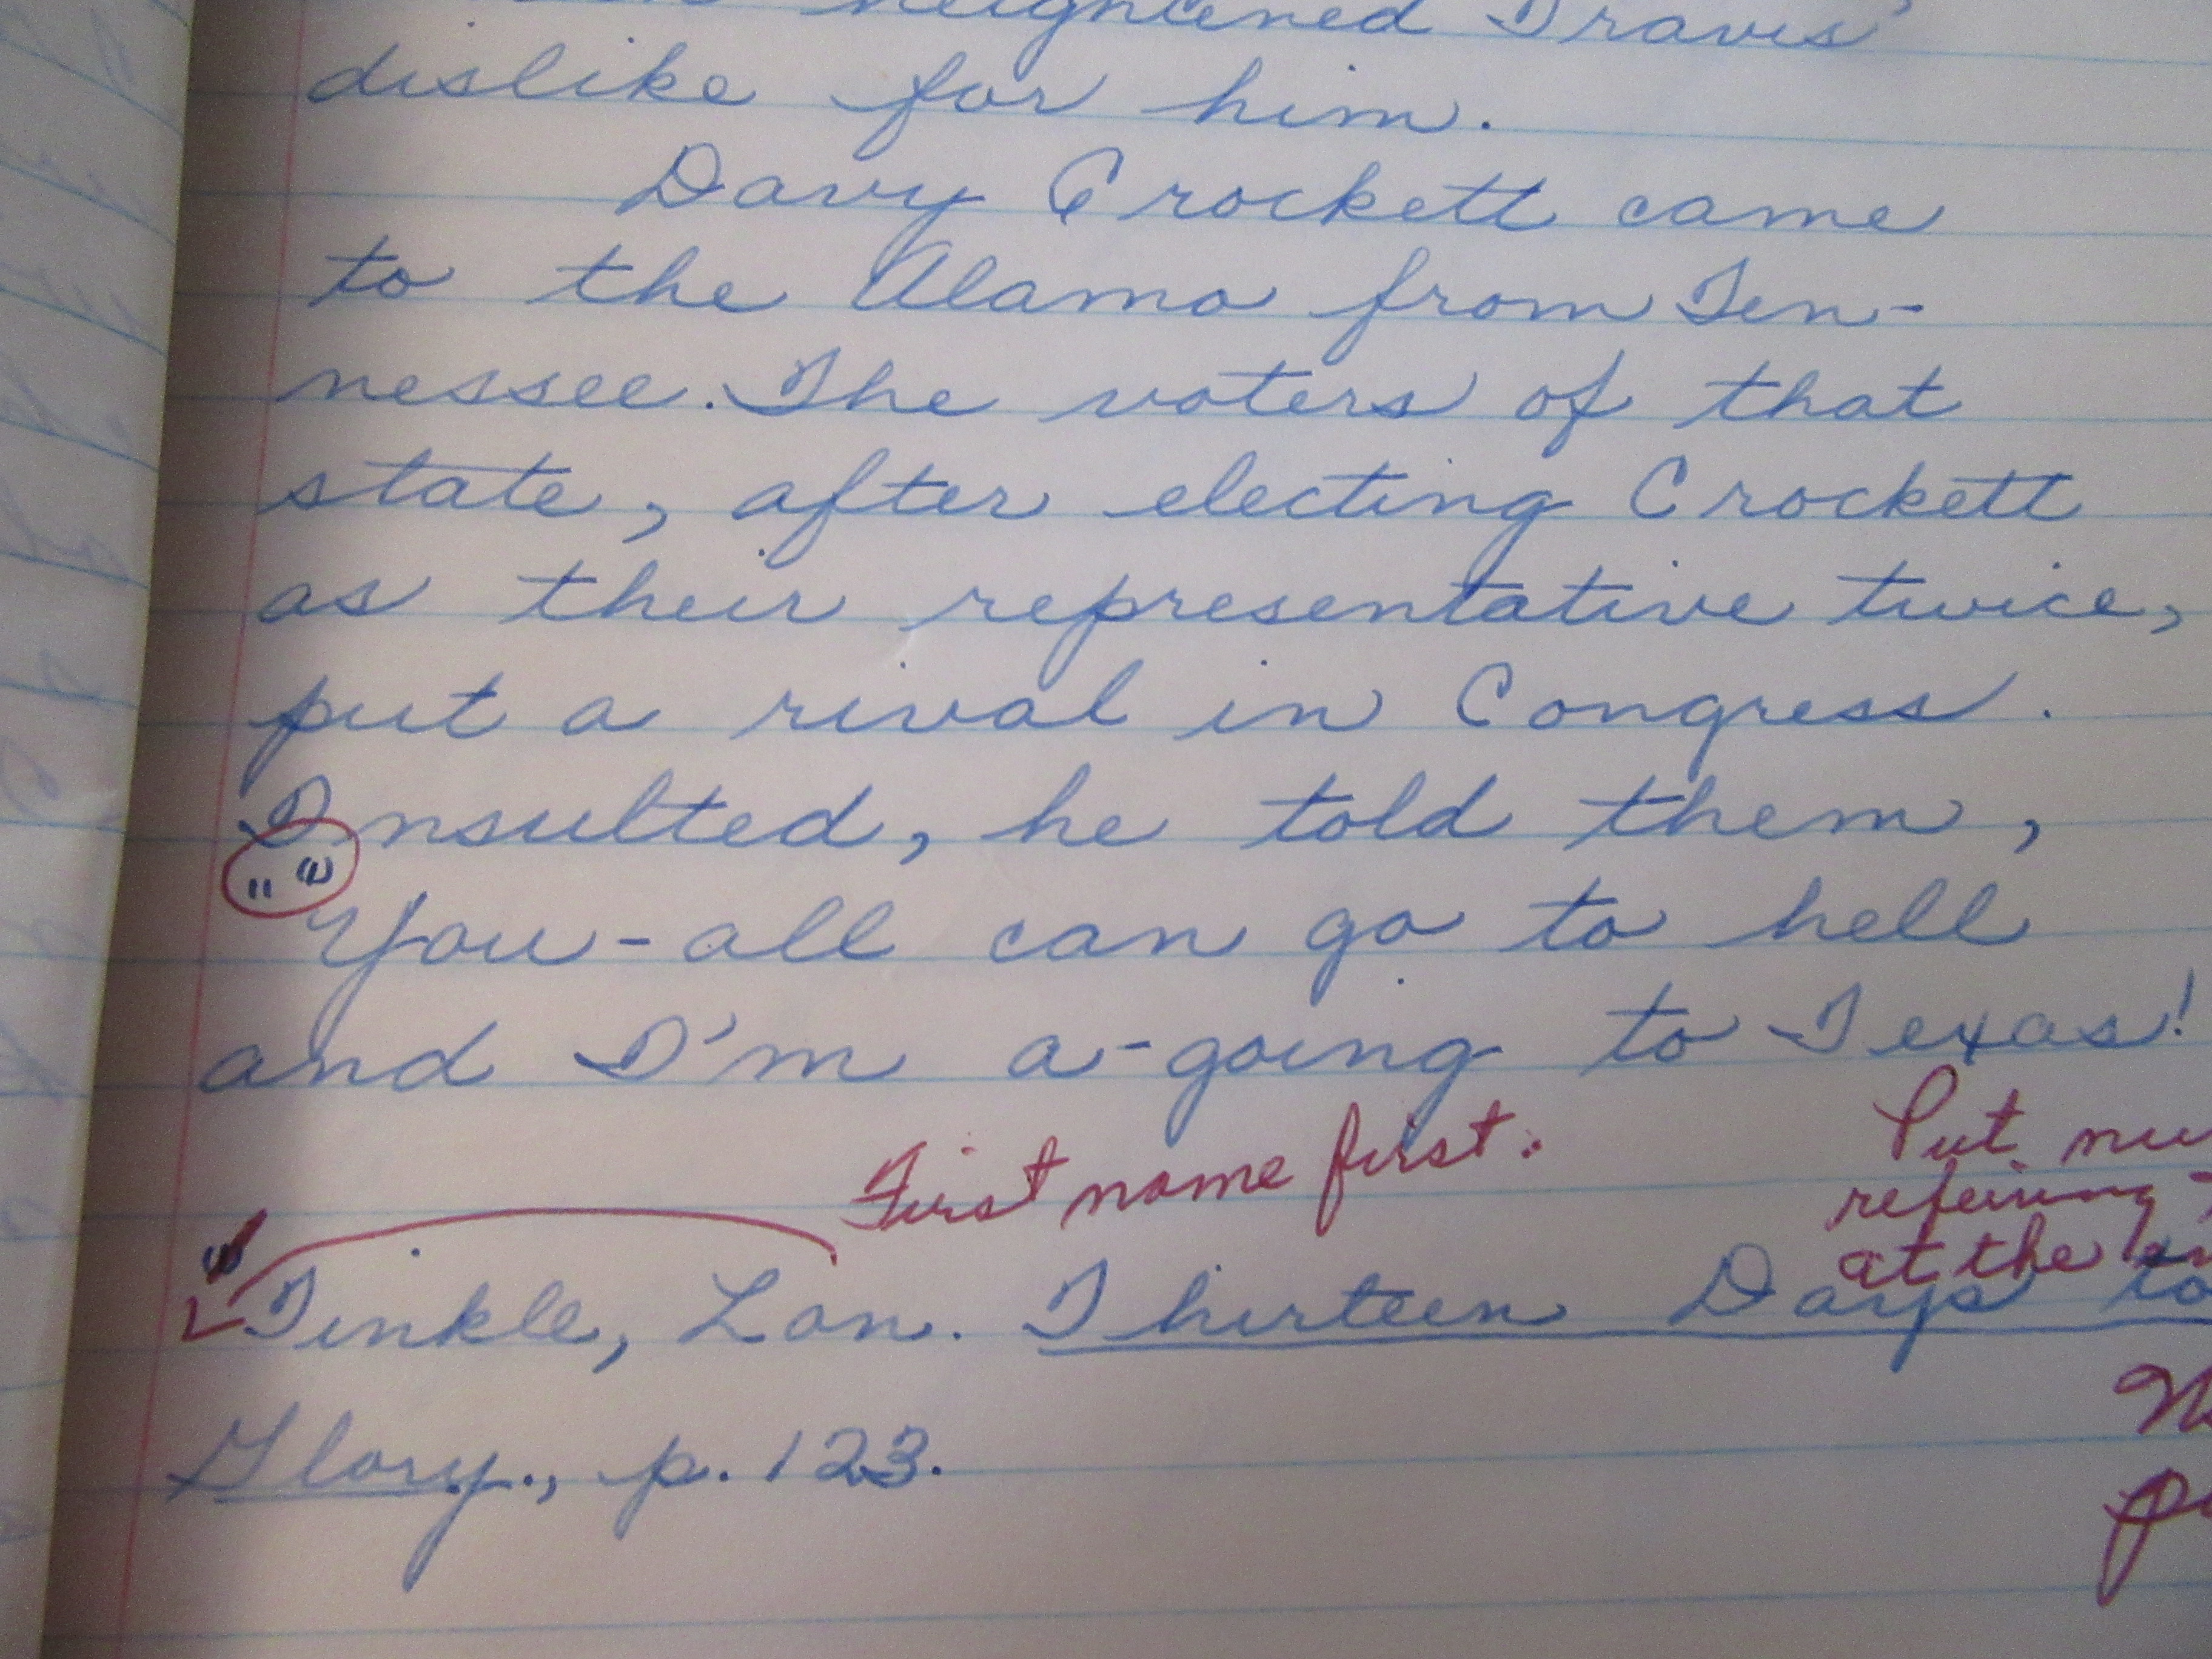 heightened Travis'
dislike for him.
Davy Crockett came
to the Alamo from Ten-
nessee. The voters of that
state, after electing Crockett
as their representative twice,
put a rival in Congress.
Insulted, he told them,
" (1)
You-all can go to hell
and I'm a-going to Texas!
First name first.
Put
refering
at the
Tinkle, Lon. Thirteen Days to
Glory., p. 123.